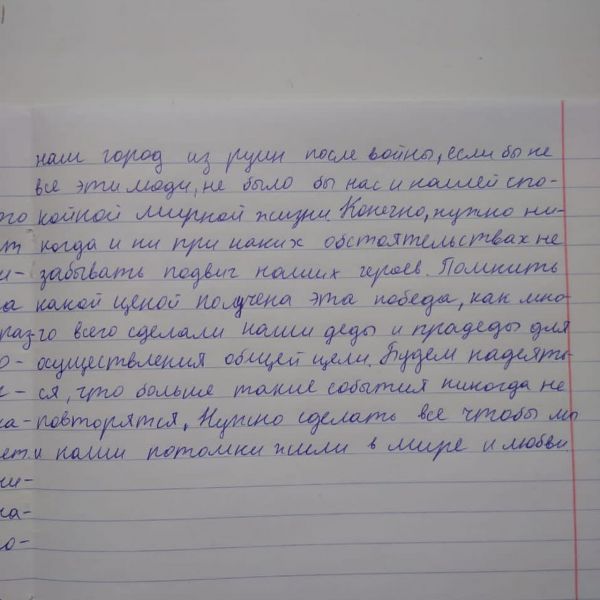 наш город из руин после войны, если бы не
все эти люди, не было бы нас и нашей спо-
ого койной мирной жизни Конечно, нужно ни-
ит когда и ни при каких обстоятельствах не
и- забывать подвиг наших героев. Помнить
а какой ценой получена эта победа, как мно-
раз- го всего сделали наши деды и прадеды для
о- осуществления общей цели. Будем надеять-
- ся, что больше такие события никогда не
ка- повторятся, Нужно сделать все чтобы мы
ет. и наши потомки жили в мире и любви.
ни-
на-
о-